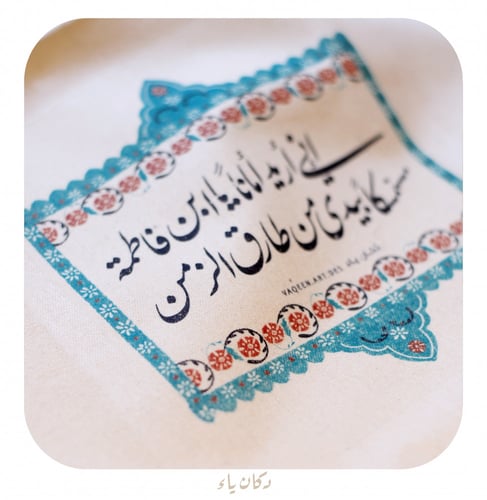 إني أريد أمانا يا ابن فاطمة
مستمسكا بيدي من طارق الزمن
YAQEEN.ART.DES
دکان یاء